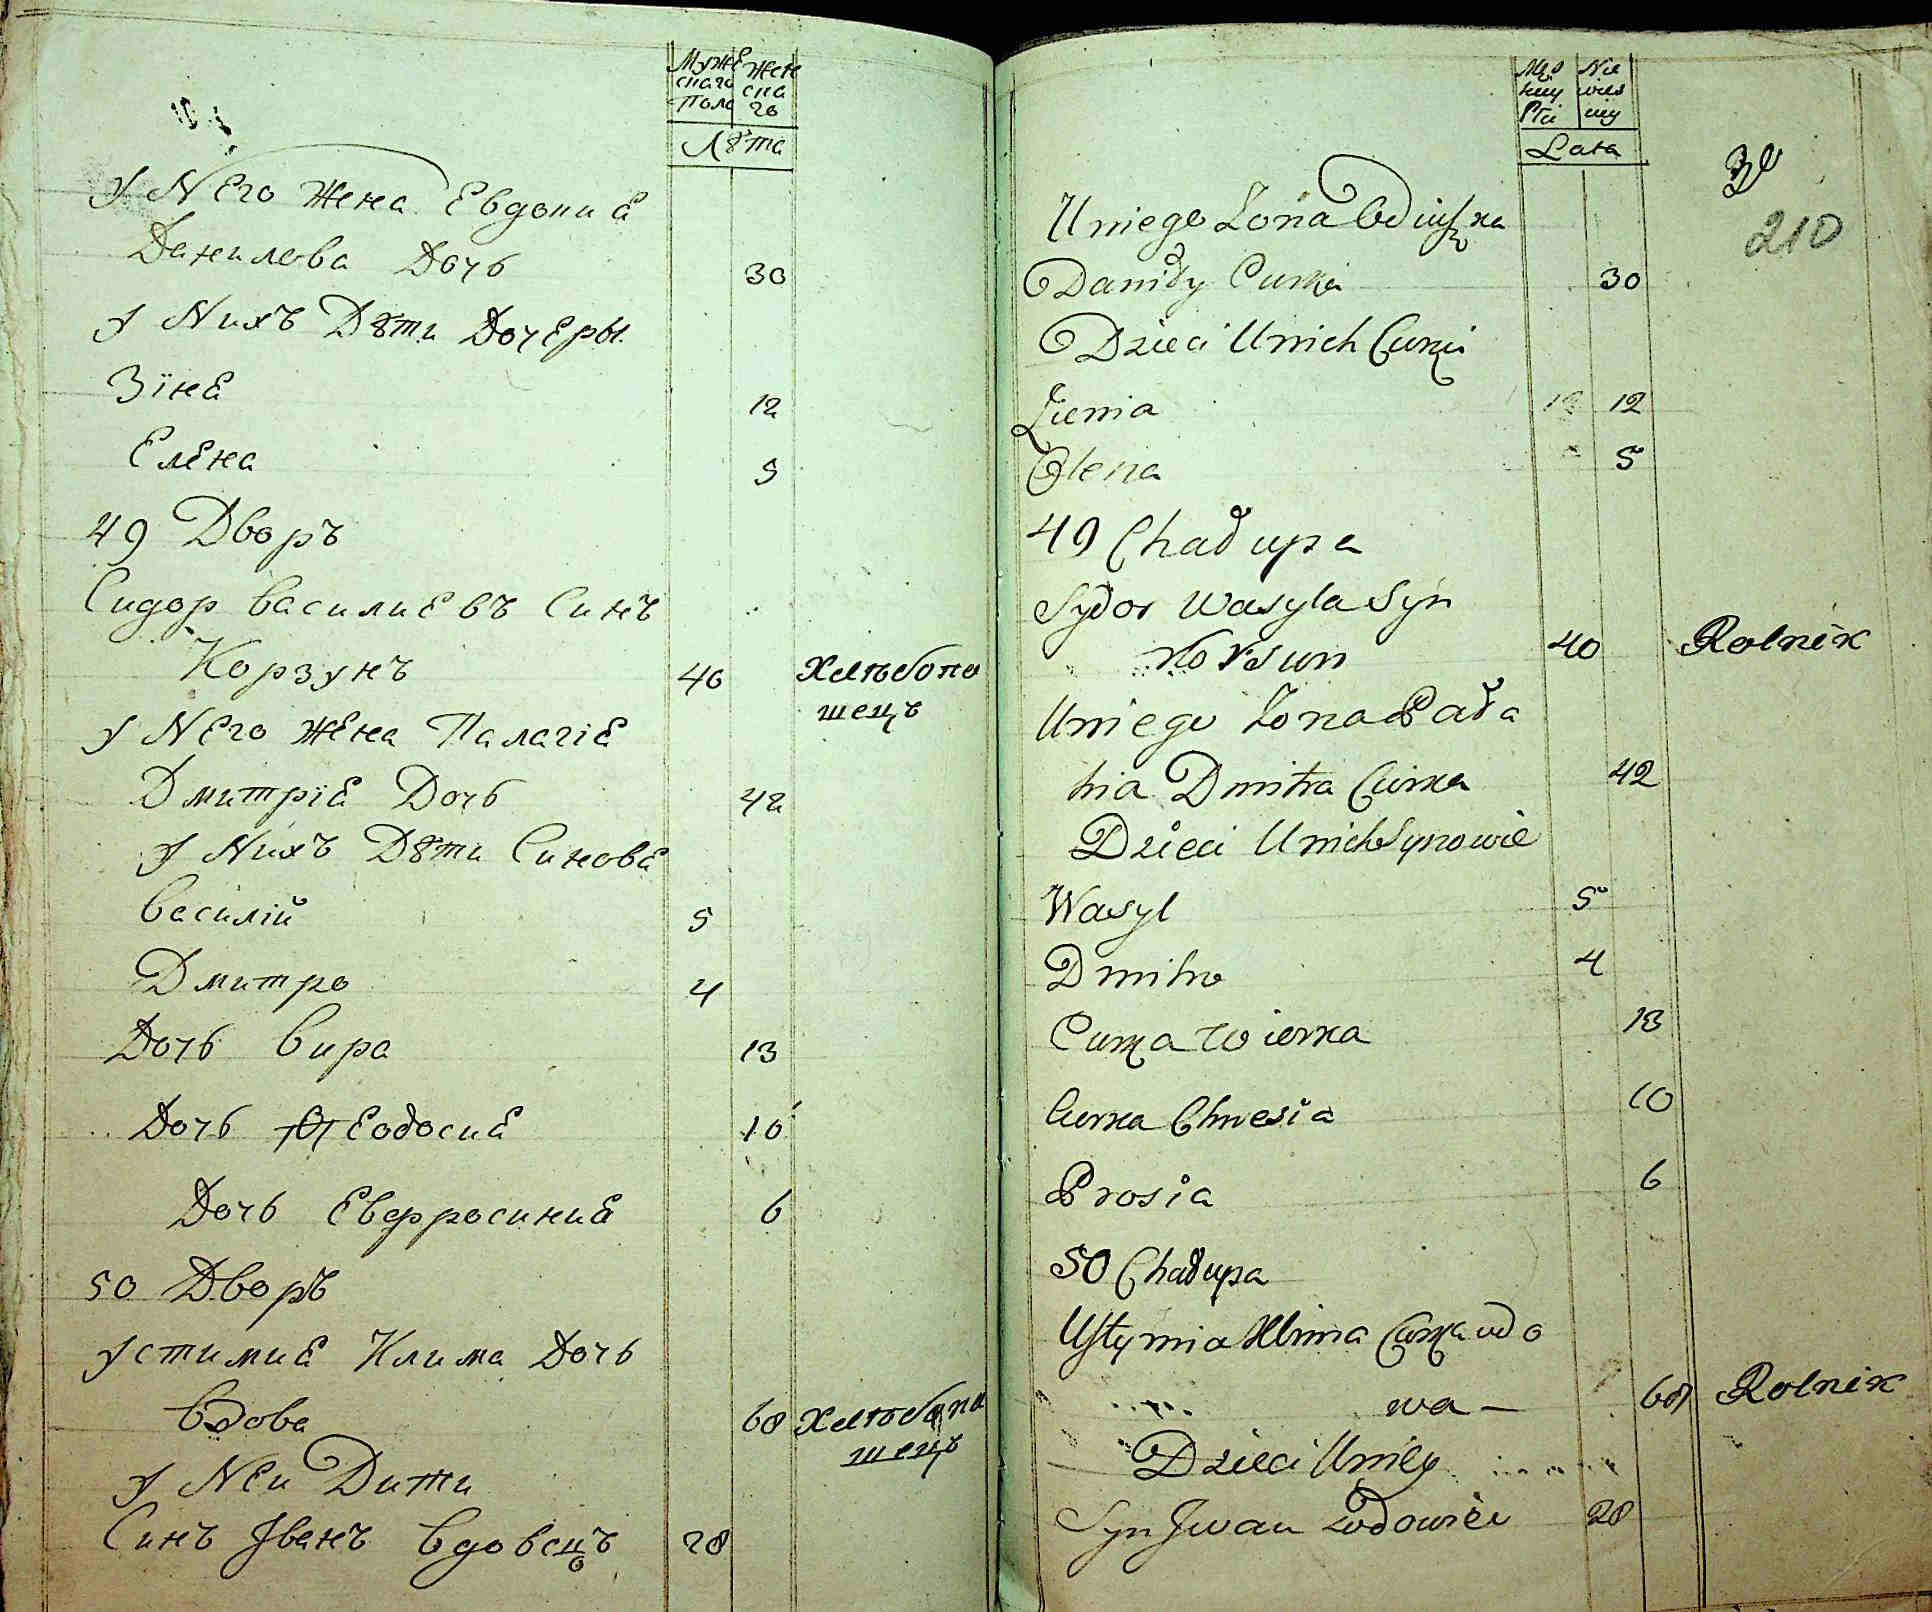 Мужескаго Пола
Женскаго
Лѣта
У Него Жена Евдокиѣ
Данилова Дочь 30
У Нихъ Дѣти Дочеры
Зїнѣ 12
Елена 5
49 Дворъ
Сидор Василиевъ Синъ
Корзунъ 40 Хлѣбопа
шецъ
У Него Жена Палагіѣ
Дмитріѣ Дочь 42
У Нихъ Дѣти Синовѣ
Василій 5
Дмитро 4
Дочь Вира 13
Дочь Ѳеодосиѣ 10
Дочь Евфросиниѣ 6
50 Дворъ
Устимиѣ Клима Дочь
Вдова 60 Хлѣбопа
шецъ
У Неи Дити
Синъ Іванъ Вдовецъ 28
Męs
kiey
Płci
Nie
wies
ciey
Lata
210
Uniego Żona
Daniły Curka 30
Dzieci Unich Curki
Zienia 12
Olena 5
49 Chałupa
Sydor Wasyla Syn
Korsun 40 Rolnik
Uniego Żona Pała
hia Dmitra Curka 42
Dzieci Unich Synowie
Wasyl 5
Dmitro 4
Curka Wierka 13
Curka Chwesia 10
Prosia 6
50 Chałupa
Ustymia Klima Curka wdo
wa - 60 Rolnik
Dzieci Uniey
Syn Jwan Wdowiec 28